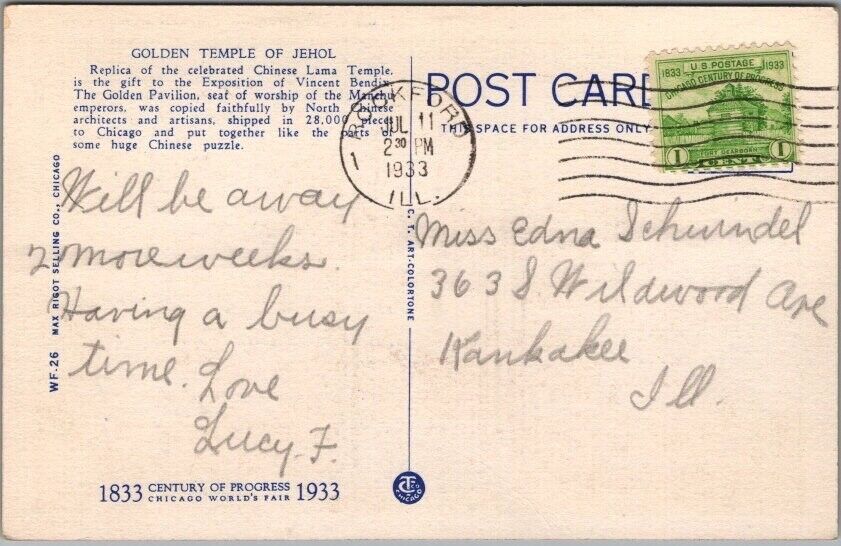 GOLDEN TEMPLE OF JEHOL
Replica of the celebrated Chinese Lama Temple,
is the gift to the Exposition of Vincent Bendix.
The Golden Pavilion, seat of worship of the Manchu
emperors, was copied faithfully by North Chinese
architects and artisans, shipped in 28,000 pieces
to Chicago and put together like the parts of
some huge Chinese puzzle.
POST CARD
THIS SPACE FOR ADDRESS ONLY
ROCKFORD
1
JUL 11
2 30 PM
1933
ILL.
U.S. POSTAGE
1833 1933
CHICAGO CENTURY OF PROGRESS
FORT DEARBORN
1 CENT 1
Will be away
2 more weeks.
Having a busy
time. Love
Lucy F.
Miss Edna Schwindel
363 S Wildwood Ave
Kankakee
Ill.
WF-26 MAX RIGOT SELLING CO., CHICAGO
C. T. ART-COLORTONE
1833 CENTURY OF PROGRESS 1933
CHICAGO WORLD'S FAIR